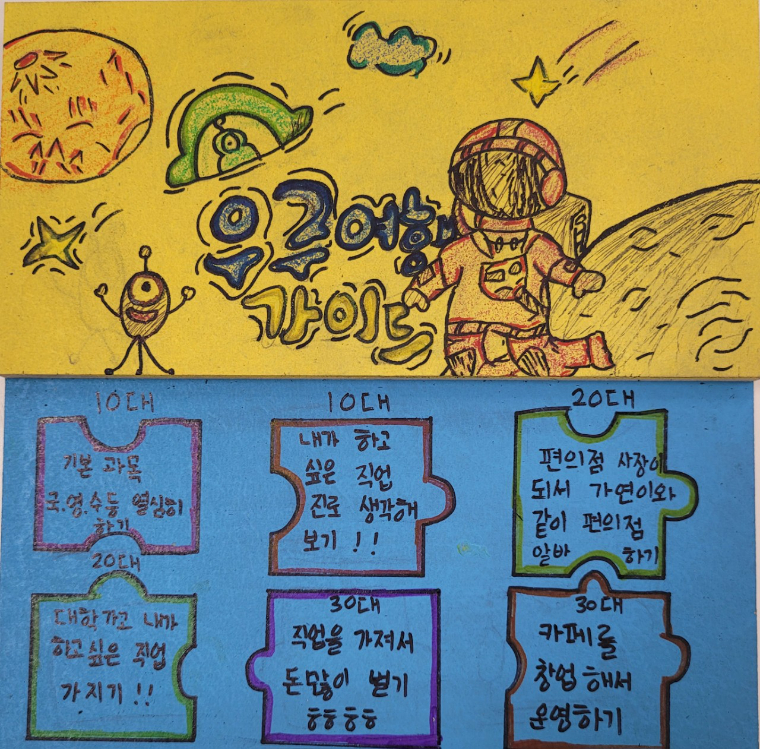 우주여행
가이드
10대
기본 과목
국.영.수등 열심히
하기
10대
내가 하고
싶은 직업
진로 생각해
보기 !!
20대
편의점 사장이
되서 가연이와
같이 편의점
알바 하기
20대
대학가고 내가
하고싶은 직업
가지기!!
30대
직업을 가져서
돈많이 벌기
ㅎㅎㅎㅎ
30대
카페를
창업 해서
운영하기